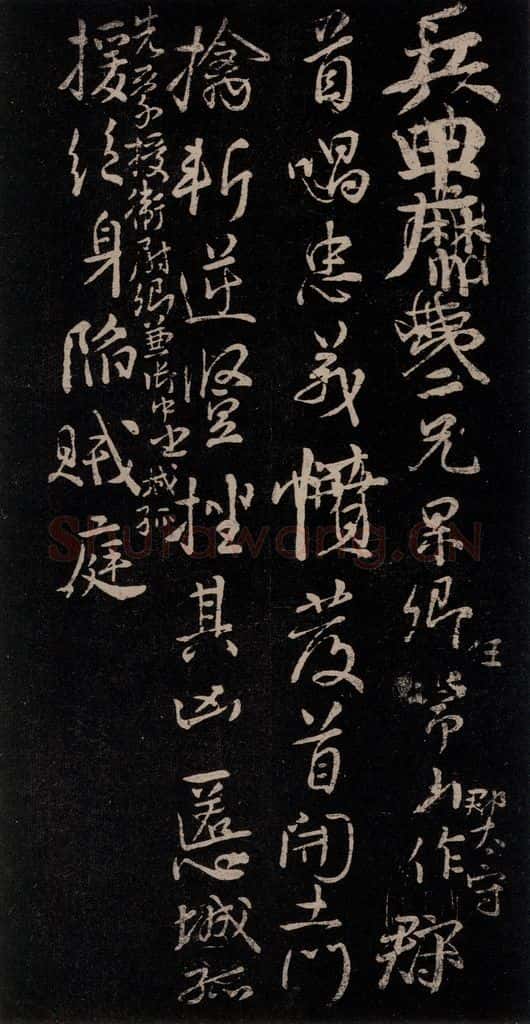 兵甲靡獘二兄杲卿任常山作郡
郡太守
首唱忠義憤發首開土門
擒斬逆豎挫其凶慝城孤
先蒙授衛尉卿兼御史中丞城孤
援絕身陷賊庭
Shufawang.CN